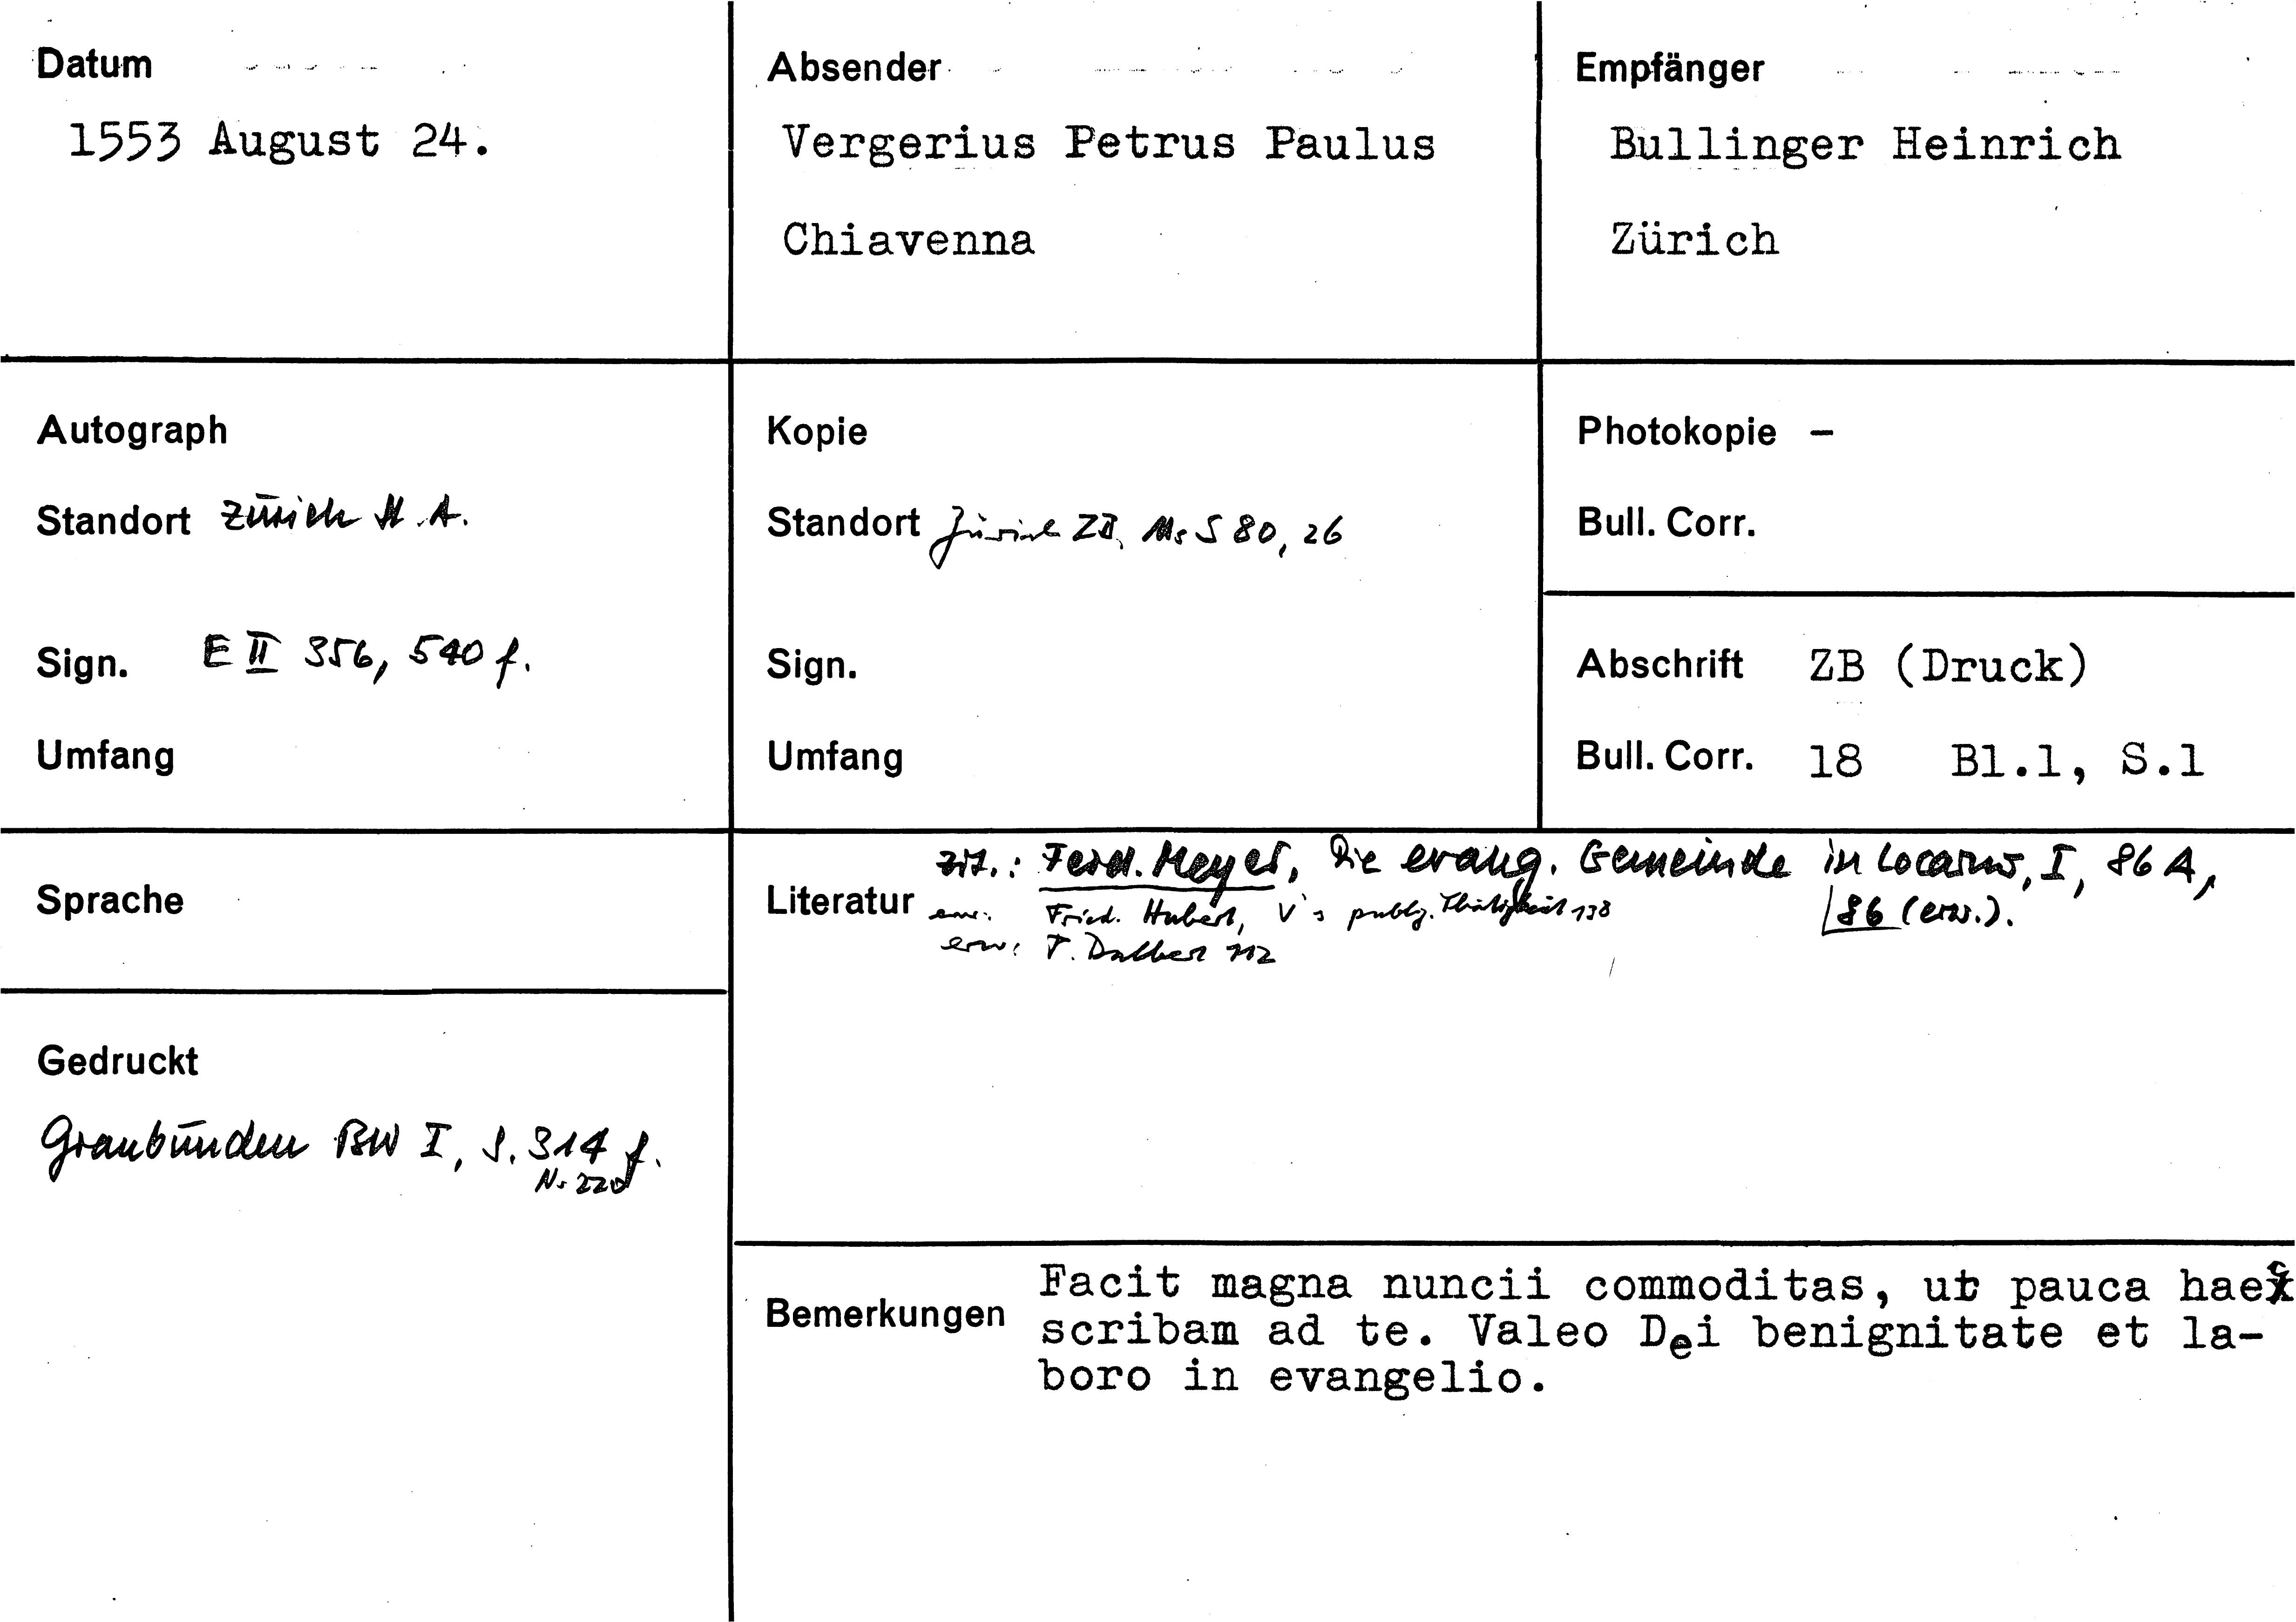 Datum
1553 August 24.
Absender
Vergerius Petrus Paulus
Chiavenna
Empfänger
Bullinger Heinrich
Zürich
Autograph
Standort Zürich St.A.
Sign. E II 356, 540 f.
Umfang
Kopie
Standort Zürich ZB, Ms S 80, 26
Sign.
Umfang
Photokopie –
Bull. Corr.
Abschrift ZB (Druck)
Bull. Corr. 18 Bl.1, S.1
Sprache
Gedruckt
Graubünden BW I, S. 314 f.
Nr 220
Literatur
zit.: Ferd. Meyer, Die evang. Gemeinde in Locarno, I, 86 A,
86 (erw.).
erw. Fried. Hubert, V's publiz. Thätigkeit 138
erw: T. Dalbert 112
Bemerkungen
Facit magna nuncii commoditas, ut pauca haec
scribam ad te. Valeo Dei benignitate et la-
boro in evangelio.